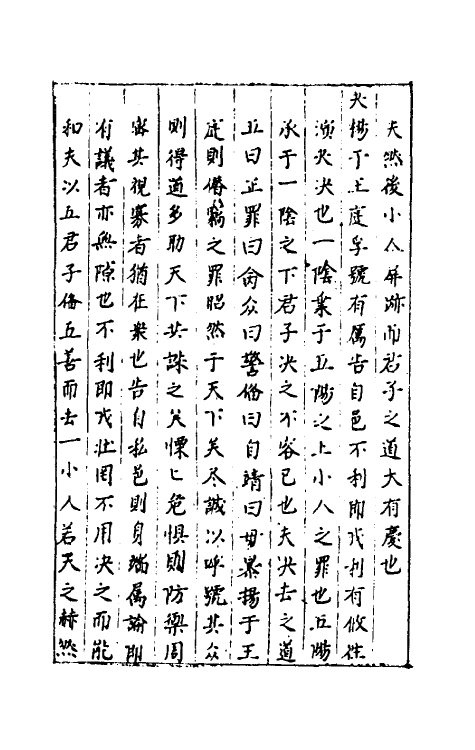 夫然後小人屏跡而君子之道大有慶也
夬揚于王庭孚號有厲告自邑不利即戎利有攸往
演夬決也一陰乗于五陽之上小人之罪也五陽
承于一陰之下君子決之不容已也夫決去之道
五曰正罪曰僉众曰警俻曰自靖曰毋暴揚于王
庭則僭竊之罪昭然于天下矣尽誠以呼號其众
則得道多助天下共誅之矣慄〻危惧則防禦周
宻其視寡者猶在衆也告自私邑則身端属論即
有議者亦無隙也不利即戎壮罔不用決之而能
和夫以五君子俻五善而去一小人若天之赫然